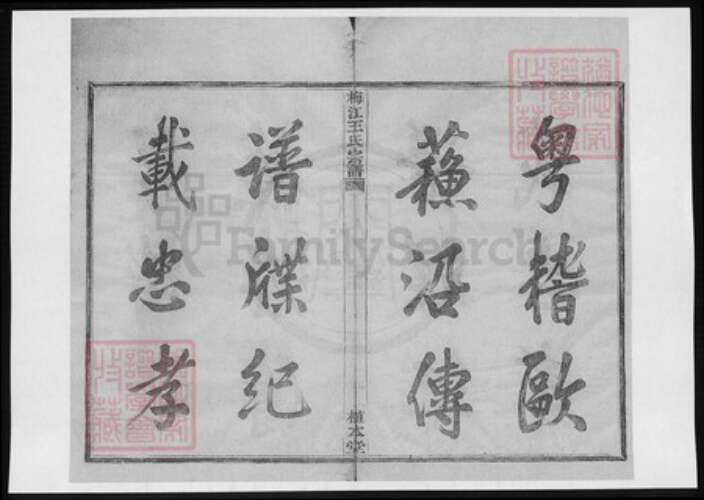 粤稽歐
蘓沿傳
梅江王氏宗譜
植本堂
譜牒紀
載忠孝
FamilySearch